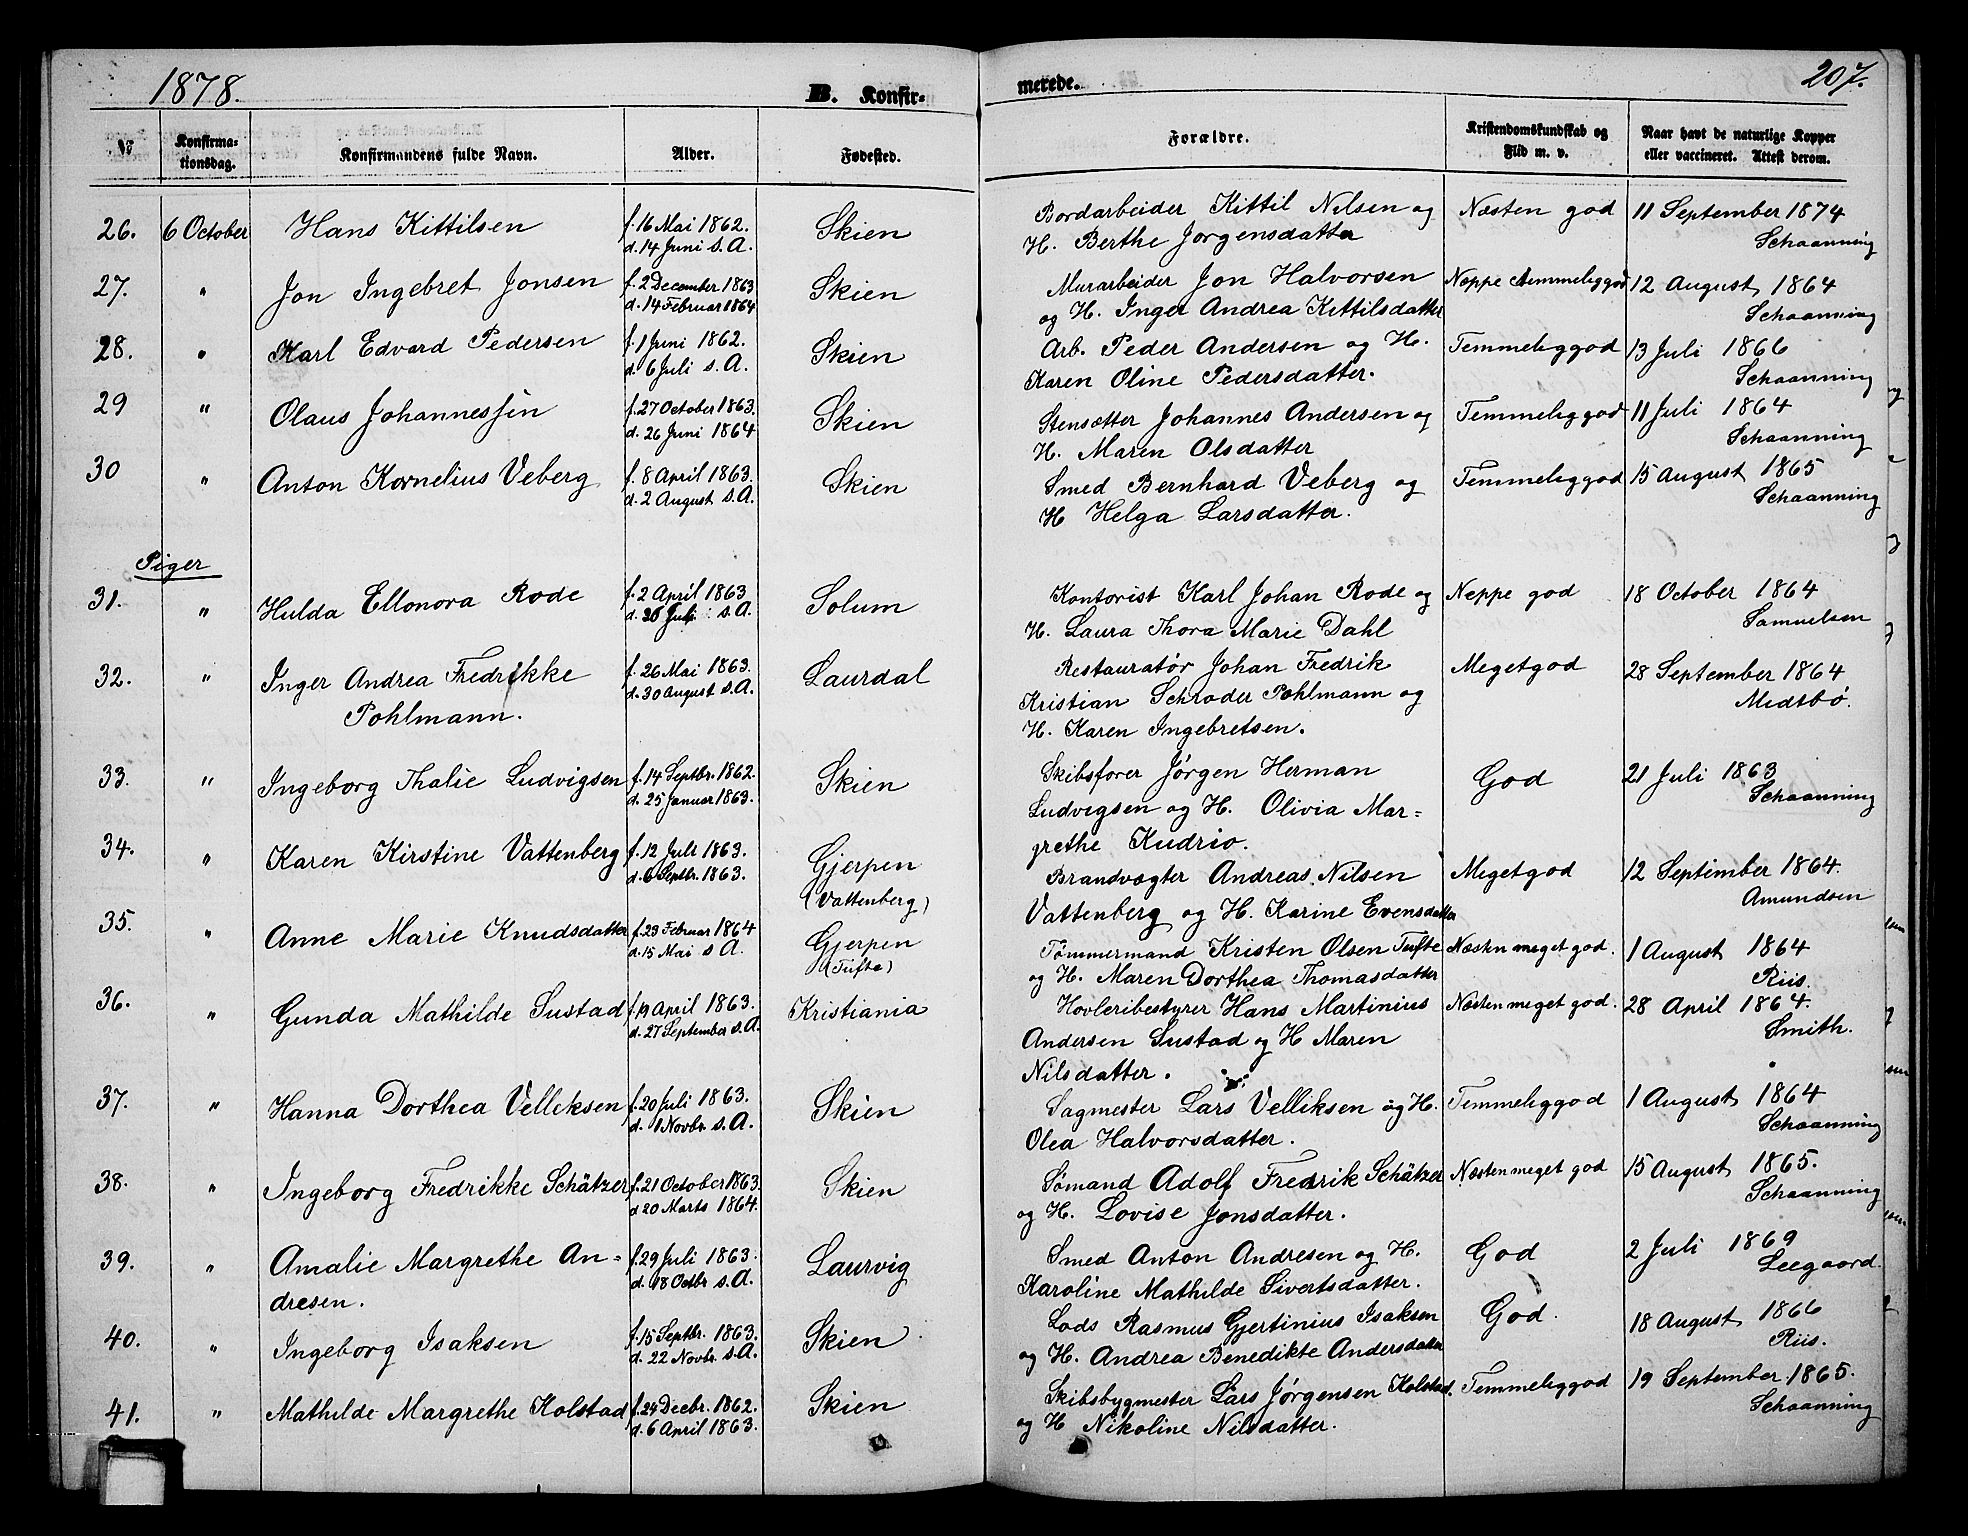 1878.
B. Konfir-
merede.
207.
№
Konfirma-
tionsdag.
Konfirmandens fulde Navn.
Alder.
Fødested.
Forældre.
Kristendomskundskab og
Flid m. v.
Naar havt de naturlige Kopper
eller vaccineret. Attest derom.
26. 6 October Hans Kittilsen f. 16 Mai 1862. Skien Bordarbeider Kittil Nilsen og Næsten god 11 September 1874
d. 14 Juni s. A. H. Berthe Jørgensdatter Schaanning
27. " Jon Ingebret Jonsen f. 2 December 1863 Skien Murarbeider Jon Halvorsen Neppe temmeliggod 12 August 1864
d. 14 Februar 1864 og H. Inger Andrea Kittilsdatter Schaanning
28. " Karl Edvard Pedersen f. 1 Juni 1862. Skien Arb. Peder Andersen og H. Temmeliggod 13 Juli 1866
d. 6 Juli s. A. Karen Oline Pedersdatter. Schaanning
29 " Olaus Johannessen f. 27 October 1863. Skien Stensætter Johannes Andersen og Temmeliggod 11 Juli 1864
d. 26 Juni 1864 H. Maren Olsdatter Schaanning
30 " Anton Kornelius Veberg f. 8 April 1863. Skien Smed Bernhard Veberg og Temmeliggod 15 August 1865
d. 2 August s. A. H Helga Larsdatter. Schaanning
Piger
31. " Hulda Ellonora Rode f. 2 April 1863 Solum Kontorist Karl Johan Rode og Neppe god 18 October 1864
d. 26 Juli s. A. H. Laura Thora Marie Dahl Samuelsen
32. " Inger Andrea Fredrikke f. 26 Mai 1863. Laurdal Restauratør Johan Fredrik Megetgod 28 September 1864
Pohlmann. d. 30 August s. A. Kristian Schrøder Pohlmann og Medtbö.
H. Karen Ingebretsen.
33. " Ingeborg Thalie Ludvigsen f. 14 Septbr. 1862. Skien Skibsfører Jørgen Herman God 21 Juli 1863
d. 25 Januar 1863. Ludvigsen og H. Olivia Mar= Schaanning
grethe Kudrio.
34. " Karen Kirstine Vattenberg f. 12 Juli 1863. Gjerpen Brandvægter Andreas Nilsen Megetgod 12 September 1864.
d. 6 Septbr. 1863. (Vattenberg) Vattenberg og H. Karine Evensdatter Amundsen
35. " Anne Marie Knudsdatter f. 23 Februar 1864 Gjerpen Tømmermand Kristen Olsen Tufte Næsten meget god. 1 August 1864
d. 15 Mai s A. (Tufte) og H. Maren Dorthea Thomasdatter Riis.
36. " Gunda Mathilde Sustad f. 19 April 1863. Kristiania Hovleribestyrer Hans Martinius Næsten meget god. 28 April 1864.
d. 27 September s. A. Andersen Sustad og H Maren Smith.
Nilsdatter.
37. " Hanna Dorthea Velleksen f. 20 Juli 1863. Skien Sagmester Lars Velliksen og H. Temmeliggod 1 August 1864
d. 1 Novbr. s. A. Olea Halvorsdatter. Schaanning
38. " Ingeborg Fredrikke Schätzer f. 21 October 1863. Skien Sømand Adolf Fredrik Schätzer Næsten meget god 15 August 1865.
d 20 Marts 1864. og H. Lovise Jonsdatter. Schaanning
39. " Amalie Margrethe An= f. 29 Juli 1863. Laurvig Smed Anton Andresen og H. God 2 Juli 1869
dresen. d. 18 Octbr s. A. Karoline Mathilde Sivertsdatter. Leegaard.
40. " Ingeborg Isaksen f. 15 Septbr. 1863. Skien Lods Rasmus Gjertinius Isaksen God. 18 August 1866
d. 22 Novbr. s. A. og H. Andrea Benedikte Andersdatter Riis.
41. " Mathilde Margrethe Kolstad f. 24 Decbr. 1862. Skien Skibsbygmester Lars Jørgensen Kolstad. Temmeliggod 19 September 1865.
d. 6 April 1863. og H Nikoline Nilsdatter. Schaanning